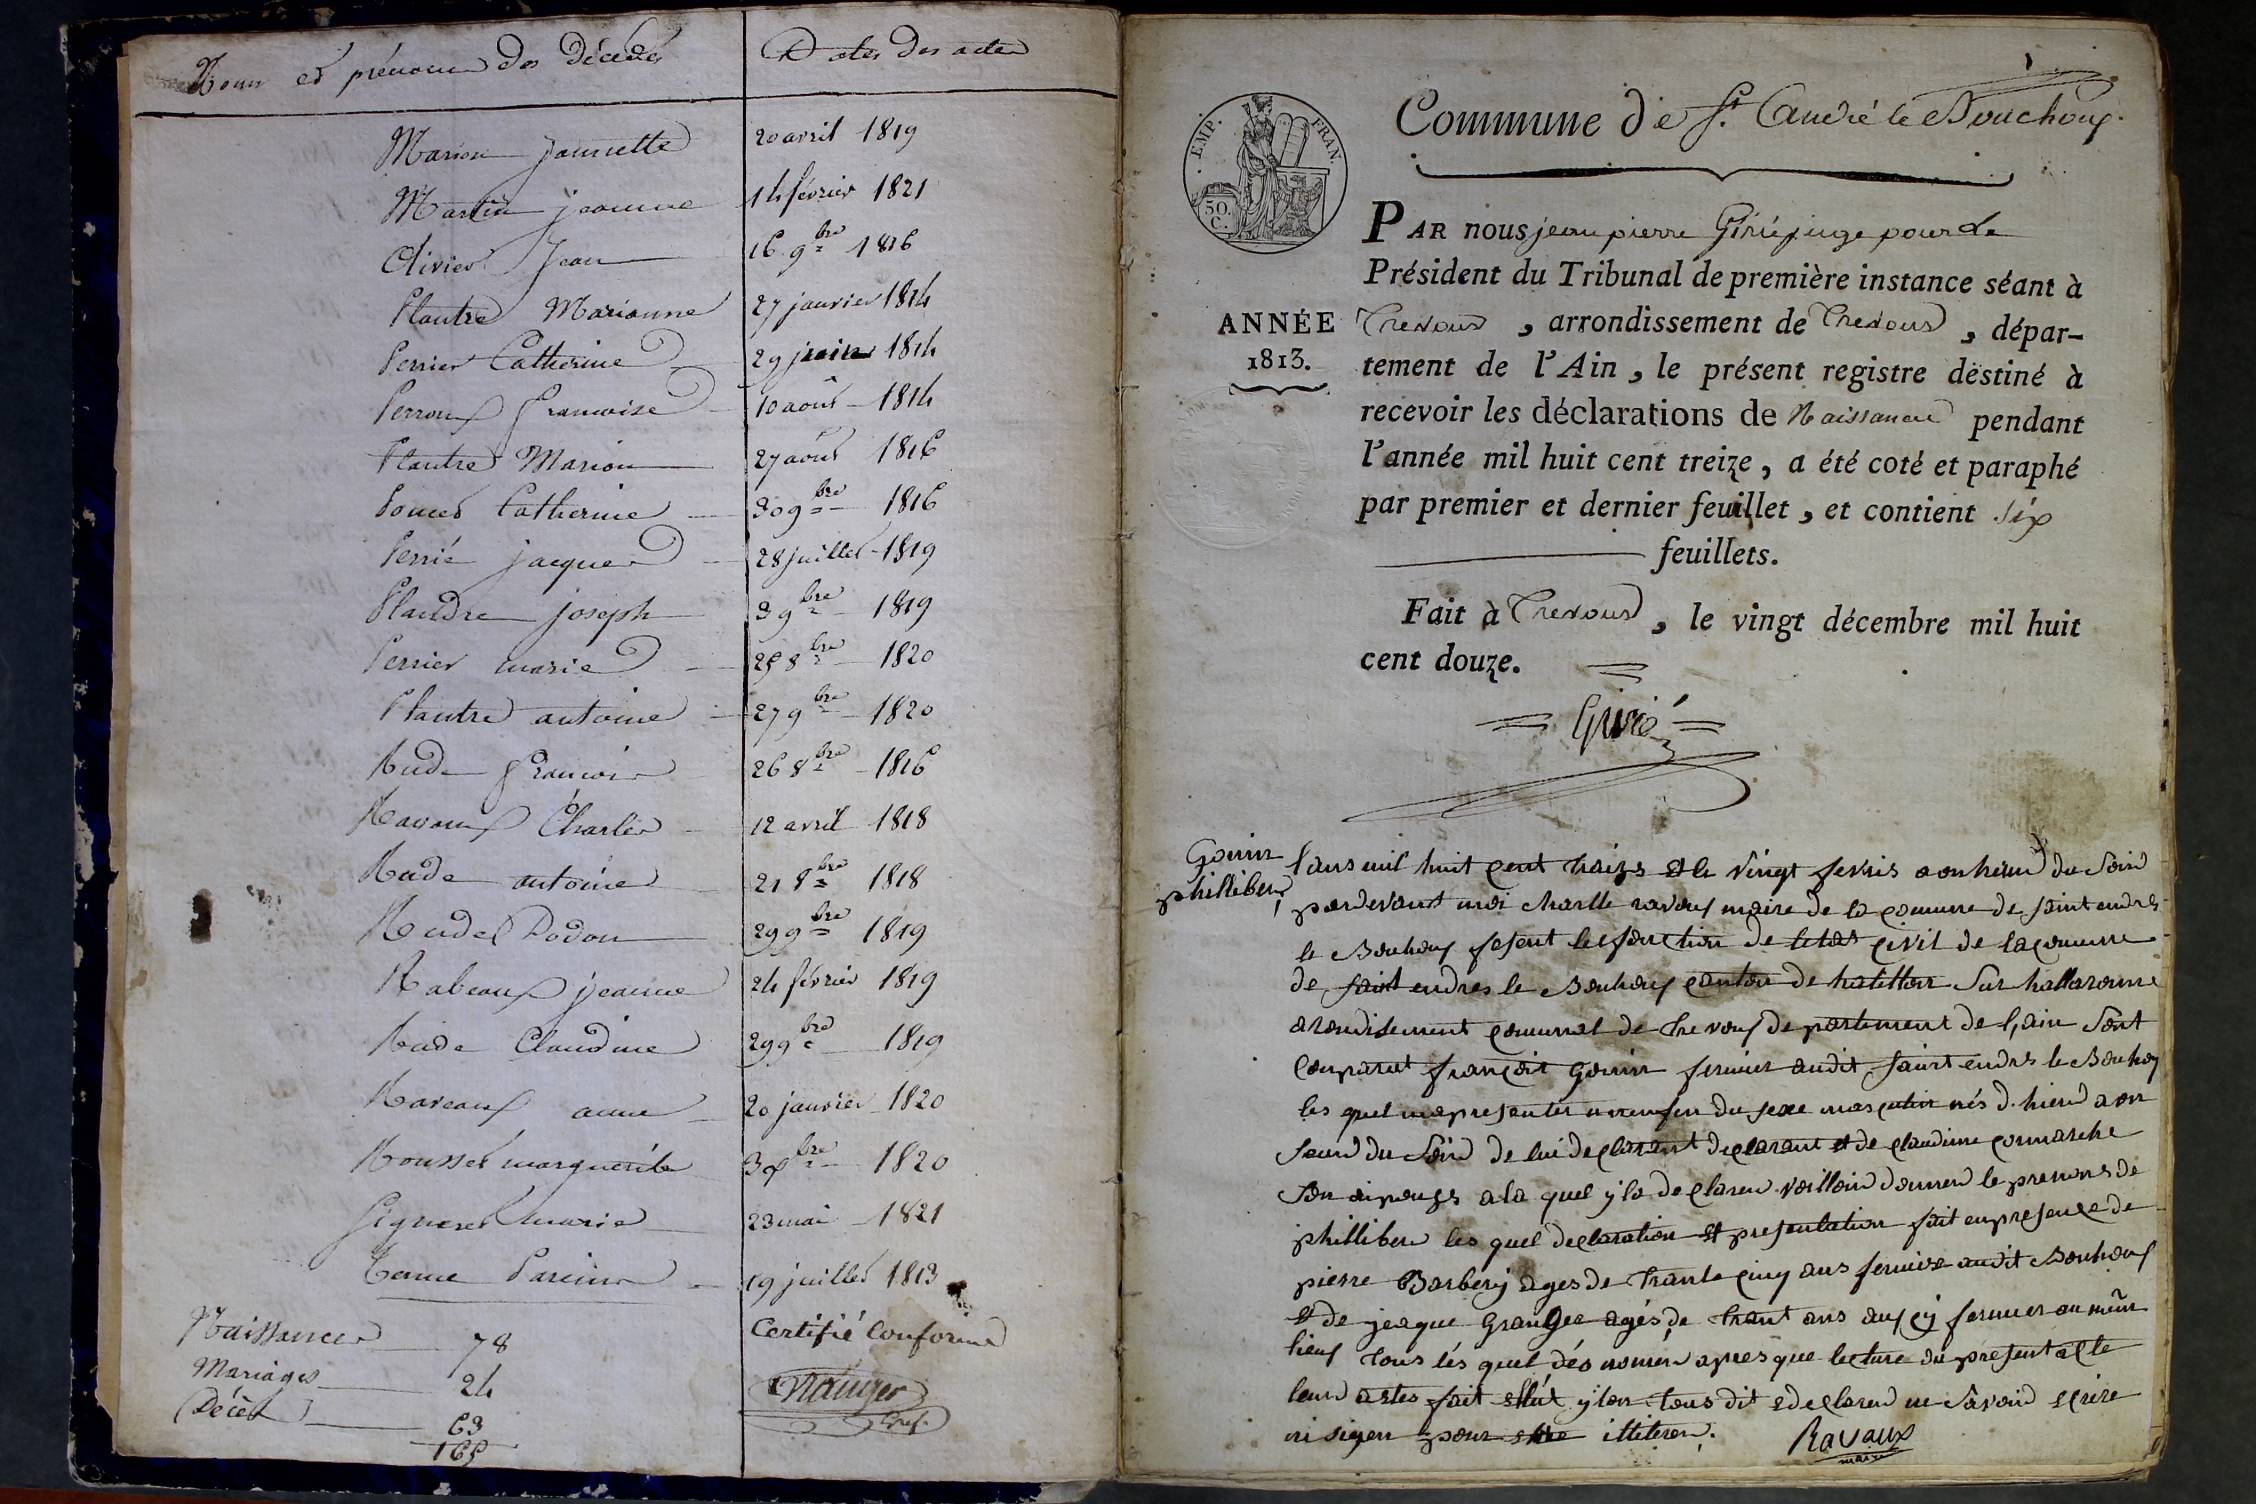 Noms et prénoms des Décédés
Dates des actes
Marion jannette 20 avril 1819
Martin jeanne 14 février 1821
Olivier Jean 16 9bre 1816
Plantre Marianne 27 janvier 1814
Perrier Catherine 29 juin 1814
Perroux francoise 10 août 1814
Plantre Marion 27 août 1816
Poncet Catherine 30 9bre 1816
Perrié jacques 28 juillet 1819
Plandre joseph 3 9bre 1819
Perrier marie 25 8bre 1820
Plantre antoine 27 9bre 1820
Rude francois 26 8bre 1816
Ravoux Charles 12 avril 1818
Rude antoine 21 8bre 1818
Rudel Dodon 29 9bre 1819
Rabeaux jeanne 24 février 1819
Rude Claudine 29 9bre 1819
Raveaux anne 20 janvier 1820
Rousset marguerite 1820
Signeret marie 23 mai 1821
19 juillet 1813
Naissances 78
Mariages 24
Décès 63
165
Certifié Conforme
Mauger
Gref.
1
Commune de St. André le Bouchoux.
EMP. FRAN.
50.
C.
PAR nous jean pierre Girié juge pour Le
Président du Tribunal de première instance séant à
ANNÉE
1813.
Trevoux, arrondissement de Trevoux, dépar-
tement de l'Ain, le présent registre destiné à
recevoir les déclarations de Naissance pendant
l'année mil huit cent treize, a été coté et paraphé
par premier et dernier feuillet, et contient six
feuillets.
Fait à Trevoux, le vingt décembre mil huit
cent douze.
Girié
Gonin
philliber
l'ans mil huit cent traizs et le vingt fevris a on heure du soird
pardevant moi charlle ravoux maire de la comune de saint endres
le Bouhoux fesent les fonction de letas civil de la comune
de saint endres le Bouhoux canton de hatillon sur hallaronne
arondisement comunal de trevoux departement de l'ain sont
comparut françoit Gonin fermier audit saint endres le Bouhoux
les quel map resenter un enfen du sexe masculin nés d. hierd a on
heurd du soird de lui declarant declarant et de claudine cormarche
son aipouse a la quel y la declared voilloird donner le prenons de
philliber les quel declaration et presentation fait en presence de
pierre Barbery ages de trante cinq ans fermier audit Bouhoux
et de jacque Granger agés de trant ans aussy fermier au mêm
lieux tous lés quel dés nomér apres que lecture du present acte
leurd astes fait ylon tous dit et declared ne savoird ecrire
ni signer pour etre illiterer.
Ravaux
maire